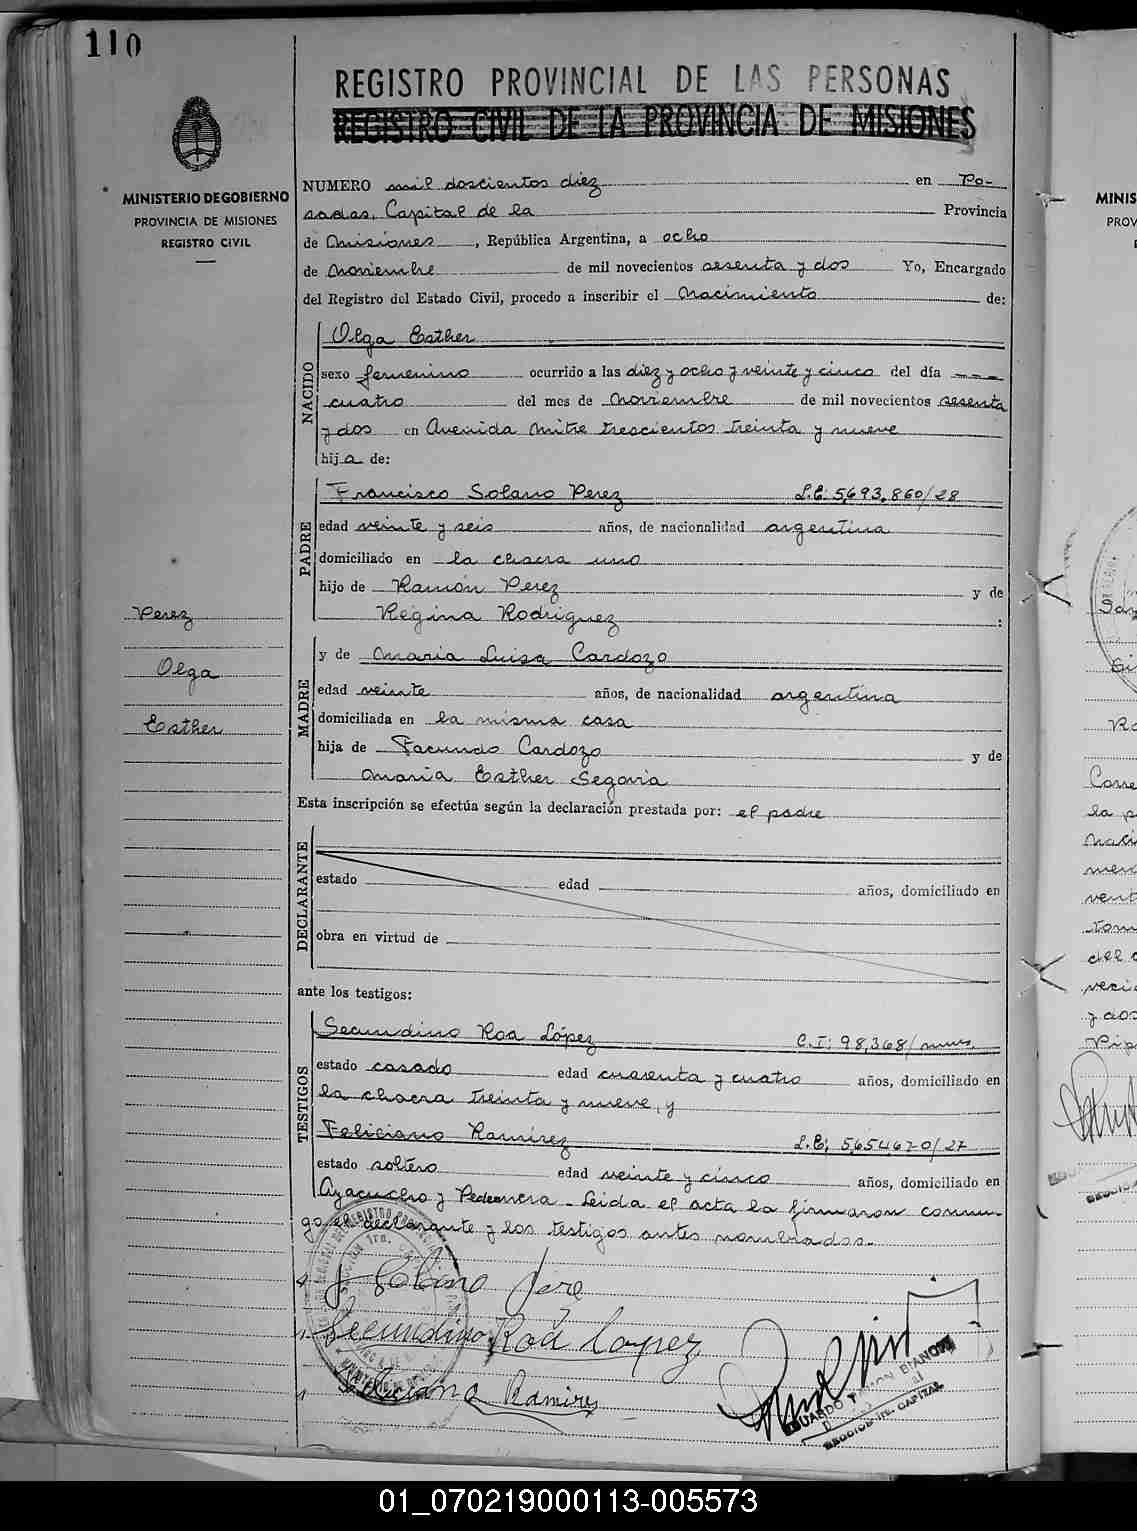 110
REGISTRO PROVINCIAL DE LAS PERSONAS
REGISTRO CIVIL DE LA PROVINCIA DE MISIONES
MINISTERIO DE GOBIERNO
PROVINCIA DE MISIONES
REGISTRO CIVIL
NUMERO mil doscientos diez en Po-
sadas, Capital de la Provincia
de Misiones, República Argentina, a ocho
de Noviembre de mil novecientos sesenta y dos Yo, Encargado
del Registro del Estado Civil, procedo a inscribir el Nacimiento de:
NACIDO
Olga Esther
sexo femenino ocurrido a las diez y ocho y veinte y cinco del día ---
cuatro del mes de Noviembre de mil novecientos sesenta
y dos en Avenida Mitre trescientos treinta y nueve
hija de:
PADRE
Francisco Solano Perez L.E: 5,693,860/28
edad veinte y seis años, de nacionalidad argentina
domiciliado en la chacra uno
hijo de Ramón Perez y de
Regina Rodriguez :
Perez
Olga
Esther
MADRE
y de Maria Luisa Cardozo
edad veinte años, de nacionalidad argentina
domiciliada en la misma casa
hija de Facundo Cardozo y de
Maria Esther Segovia
Esta inscripción se efectúa según la declaración prestada por: el padre
DECLARANTE
estado edad años, domiciliado en
obra en virtud de
ante los testigos:
TESTIGOS
Secundino Roa López C.I: 98,368/mnes.
estado casado edad cuarenta y cuatro años, domiciliado en
la chacra treinta y nueve, y
Feliciano Ramirez L.E; 5,654,670/27
estado soltero edad veinte y cinco años, domiciliado en
Ayacucho y Pedernera - Leida el acta la firmaron conmi-
go el declarante y los testigos antes nombrados.-
Secundino Roa Lopez
Feliciano Ramirez
01_070219000113-005573